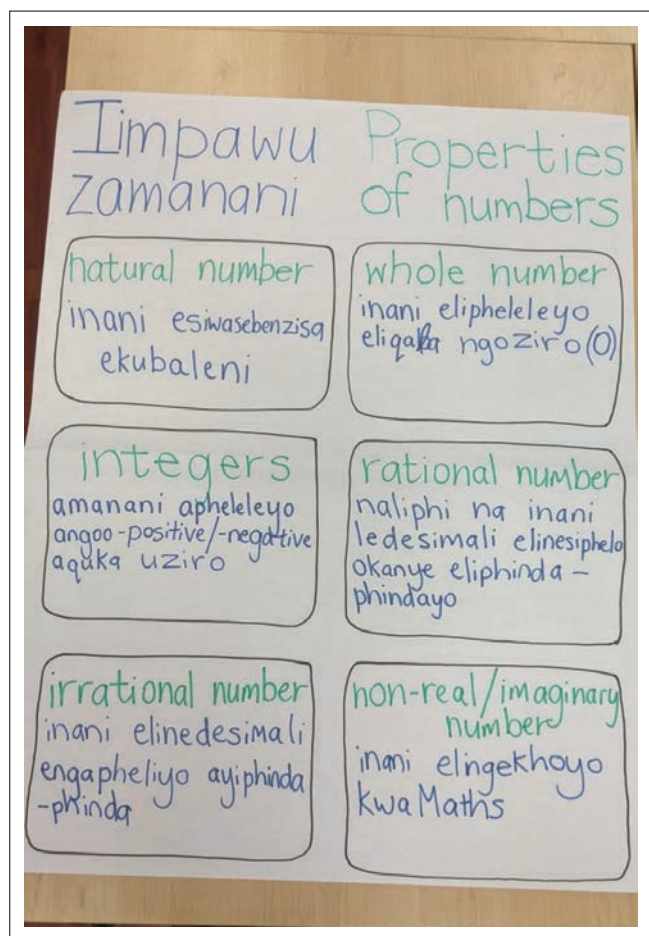 Iimpawu
zamanani
Properties
of numbers
natural number
inani esiwasebenzisa
ekubaleni
whole number
inani elipheleleyo
eliqala ngoziro (0)
integers
amanani apheleleyo
angoo-positive/-negative
aquka uziro
rational number
naliphi na inani
ledesimali elinesiphelo
okanye eliphinda-
phindayo
irrational number
inani elinedesimali
engapheliyo ayiphinda
-phinda
non-real/imaginary
number
inani elingekhoyo
kwaMaths